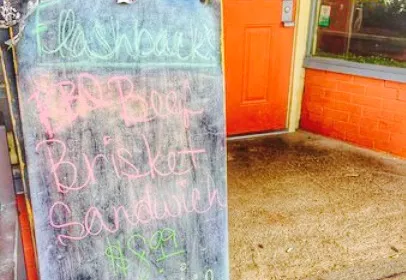 Flashback
BBQ Beef
Brisket
Sandwich
$8.99